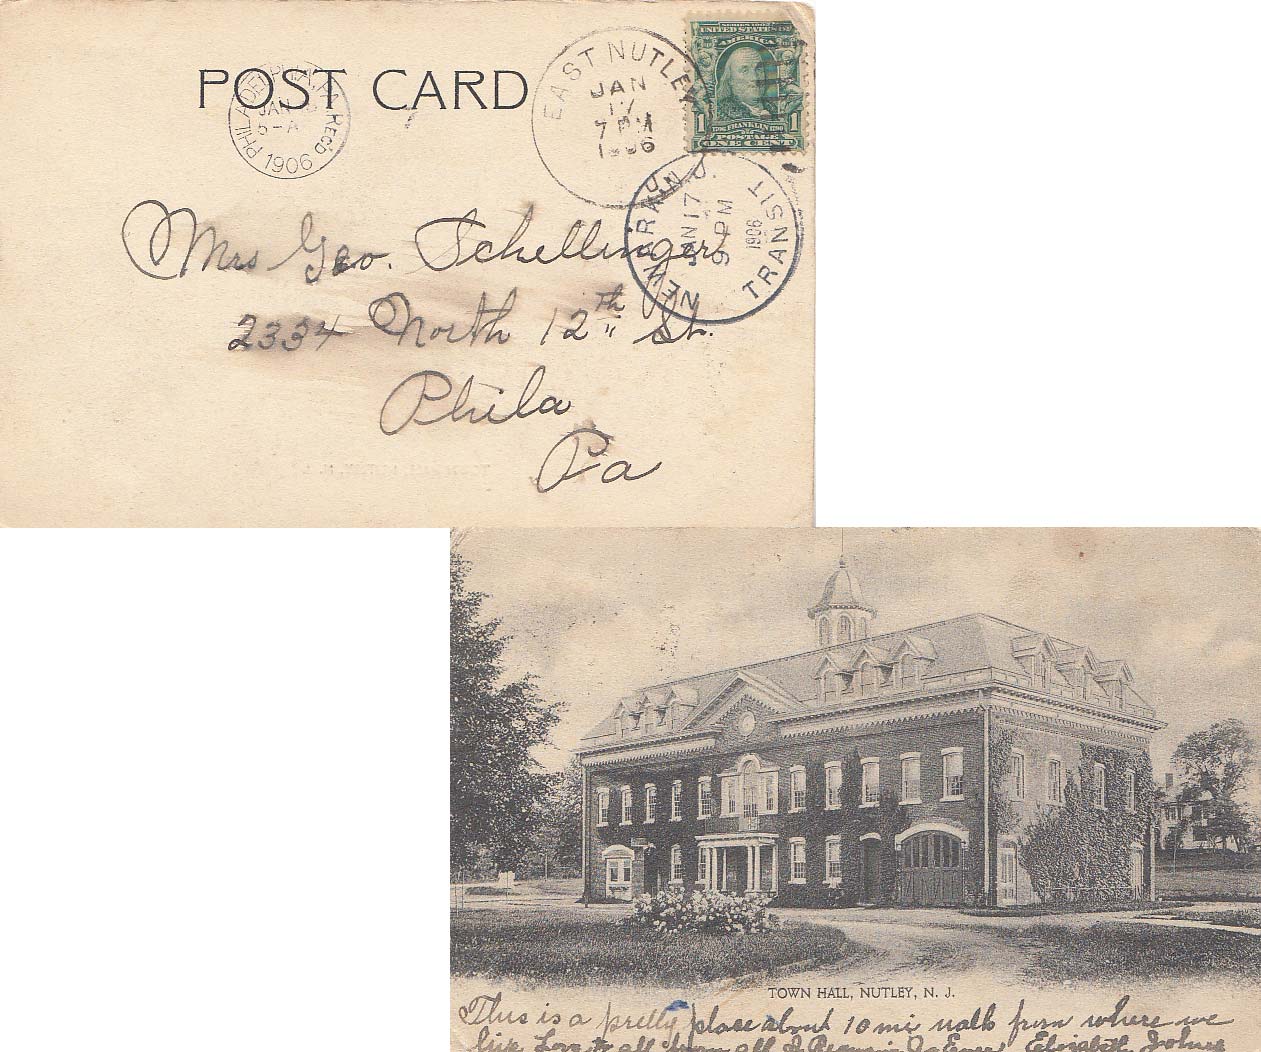 POST CARD
PHILADELPHIA, PA. REC'D
JAN
5-A
1906
EAST NUTLEY
JAN
17
7 PM
1906
SERIES 1902
UNITED STATES OF
AMERICA
1706 FRANKLIN 1790
1 POSTAGE 1
ONE CENT
NEWARK, N.J.
JAN 17
9 PM
1906
TRANSIT
Mrs Geo. Schellinger
2334 North 12th St.
Phila
Pa
TOWN HALL, NUTLEY, N. J.
This is a pretty place about 10 mi walk from where we
live Love to all from all I Remain As Ever Elizabeth